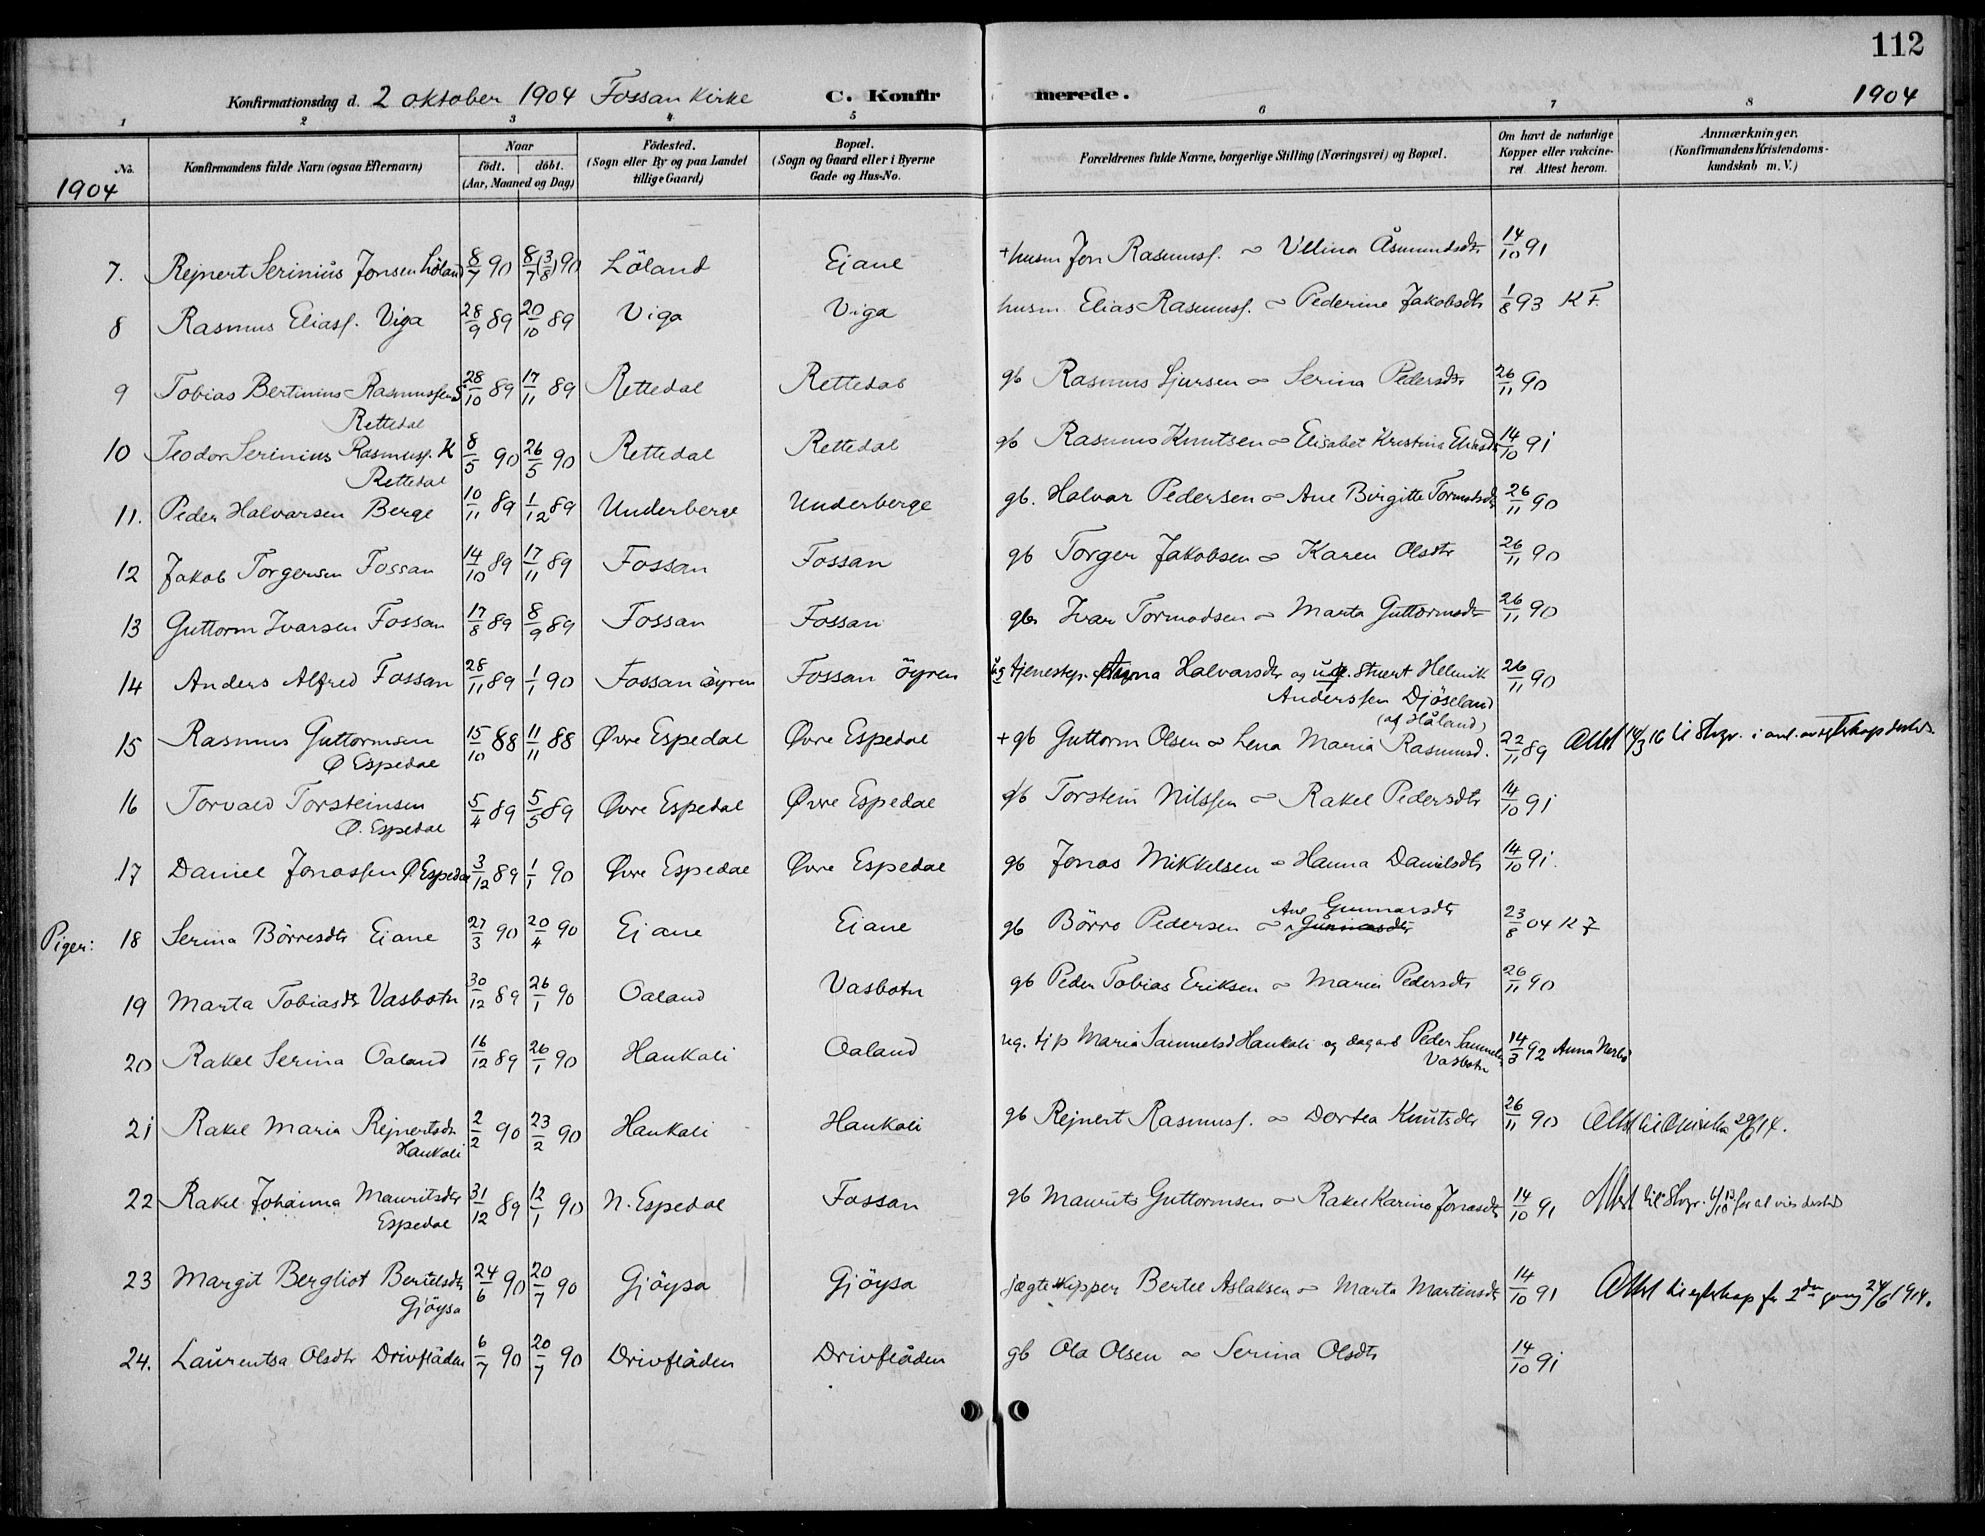 112
Konfirmationsdag d. 2 oktober 1904 Fossan Kirke C. Konfirmerede. 1904
1 2 3 4 5 6 7 8
No. Konfirmandens fulde Navn (ogsaa Efternavn) Naar Födt. döbt. (Aar, Maaned og Dag) Födested. (Sogn eller By og paa Landet tillige Gaard) Bopæl. (Sogn og Gaard eller i Byerne Gade og Hus-No. Forældrenes fulde Navne, borgerlige Stilling (Næringsvei) og Bopæl. Om havt de naturlige Kopper eller vakcineret Attest herom. Anmærkninger. (Konfirmandens Kristendomskundskab m. V.)
1904
7. Rejnert Serinius Jonsen Löland 8/7 90 8/7 (3/8) 90 Löland Eiane + husm Jon Rasmuss. ∞ Villina Åsmundsdtr 14/10 91
8 Rasmus Eliass. Viga 28/9 89 20/10 89 Viga Viga husm. Elias Rasmuss. ∞ Pederine Jakobsdtr 1/8 93 K F.
9 Tobias Bertinius Rasmussen S 28/10 89 17/11 89 Rettedal Rettedal gb Rasmus Sjursen ∞ Serina Pedersdtr 26/11 90
Rettedal
10 Teodor Serinius Rasmuss. K 8/5 90 26/5 90 Rettedal Rettedal gb Rasmus Knutsen ∞ Elisabet Kristina Eliasdtr 14/10 91
Rettedal
11. Peder Halvarsen Berge 10/11 89 1/12 89 Underberge Underberge gb. Halvar Pedersen ∞ Ane Birgitte Tormodsdtr 26/11 90
12 Jakob Torgersen Fossan 14/10 89 17/11 89 Fossan Fossan gb Torger Jakobsen ∞ Karen Olsdtr 26/11 90
13 Guttorm Ivarsen Fossan 17/8 89 8/9 89 Fossan Fossan gb Ivar Tormodsen ∞ Marta Guttormsdtr 26/11 90
14 Anders Alfred Fossan 28/11 89 1/1 90 Fossan öyren Fossan öyren ug tjenestep. Anna Halvarsdtr og ug. Stuert Helmik 26/11 90
Anderssen Djöseland
(af Håland)
15 Rasmus Guttormsen 15/10 88 11/11 88 Øvre Espedal Øvre Espedal + gb Guttorm Olsen ∞ Lena Maria Rasmusd. 22/11 89 Attest
Ø Espedal
16 Torvald Torsteinsen 5/4 89 5/5 89 Øvre Espedal Øvre Espedal gb Torstein Nilssen ∞ Rakel Pedersdtr 14/10 91
Ø. Espedal
17 Daniel Jonassen Ø Espedal 3/12 89 1/1 90 Øvre Espedal Øvre Espedal gb Jonas Mikkelsen ∞ Hanna Danielsdtr 14/10 91.
Ane Gunnarsdtr
Piger: 18 Serina Börresdtr Eiane 27/3 90 20/4 90 Ejane Eiane gb Börre Pedersen ∞ Gunnasdtr 23/8 04 K F
19 Marta Tobiasdtr Vasbotn 30/12 89 26/1 90 Oaland Vasbotn gb Peder Tobias Eriksen ∞ Maria Pedersdtr 26/11 90
20 Rakel Serina Oaland 16/12 89 26/1 90 Haukali Oaland ug. tjp Maria Samuelsd Haukali og dagarb Peder Samuels 14/3 92 Anna Nerbö
Vasbotn
21 Rakel Maria Rejnertsdtr 2/2 90 23/2 90 Haukali Haukali gb Rejnert Rasmuss. ∞ Dortea Knutsdtr 26/11 90 Attest til
Haukali
22 Rakel Johanna Mauritsdtr 31/12 89 12/1 90 N. Espedal Fossan gb Maurits Guttormsen ∞ Rakel Karina Jonasdtr 14/10 91 Attest til
Espedal
23 Margit Bergliot Bertelsdtr 24/6 90 20/7 90 Gjöysa Gjöysa jægteskipper Bertel Aslaksen ∞ Marta Martinsdtr 14/10 91 Attest til egteskap for 2den gang 24/6 1914.
Gjöysa
24. Laurentsa Olsdtr Drivflåden 6/7 90 20/7 90 Drivflåden Drivflåden gb Ola Olsen ∞ Serina Olsdtr 14/10 91